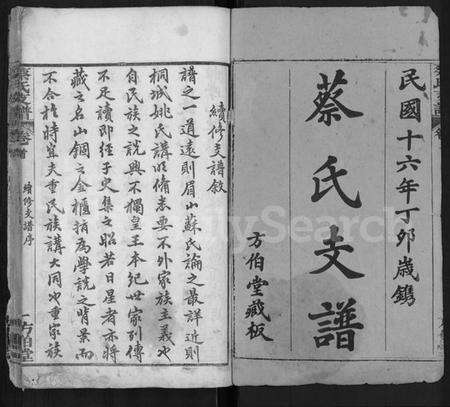 民國十六年丁卯歲鐫
蔡氏支譜
方伯堂藏板
續修支譜敘
譜之一道遠則眉山蘇氏論之最詳近則
桐城姚氏講明脩表要不外家族主義也
自民族之說興不獨皇王本紀世家列傳
不足讀即經子史集之昭若日星者亦將
藏之名山錮之金匱指為學說之背景而
不合於時宜夫重民族講大同也重家族
蔡氏支譜 卷首
續修支譜序
一 方伯堂
FamilySearch